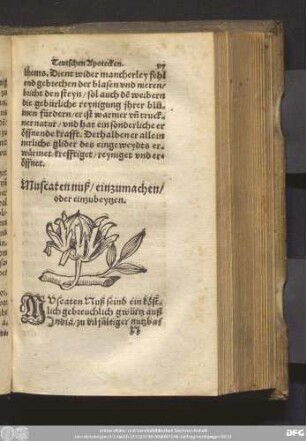 Teutschen Apotecken. 97
thems. Dient wider mancherley fehl
vnd gebrechen der blasen vnd nieren/
bricht den steyn/ sol auch dē weibern
die gebürliche reynigung jhrer blů-
men fürdern/ er ist warmer vn̄ truck-
ner natur/ vnd hat ein sonderliche er
öffnende krafft. Derhalben er alle in
nerliche glider des eingeweydts er-
wärmet/ krefftiget/ reyniget vnd er-
öffnet.
Muscaten nuß/ einzumachen/
oder einzubeytzen.
MVscaten Nuß seind ein köst-
lich gebreuchlich gwürtz auß
India/ zu vilfältiger nutzbar